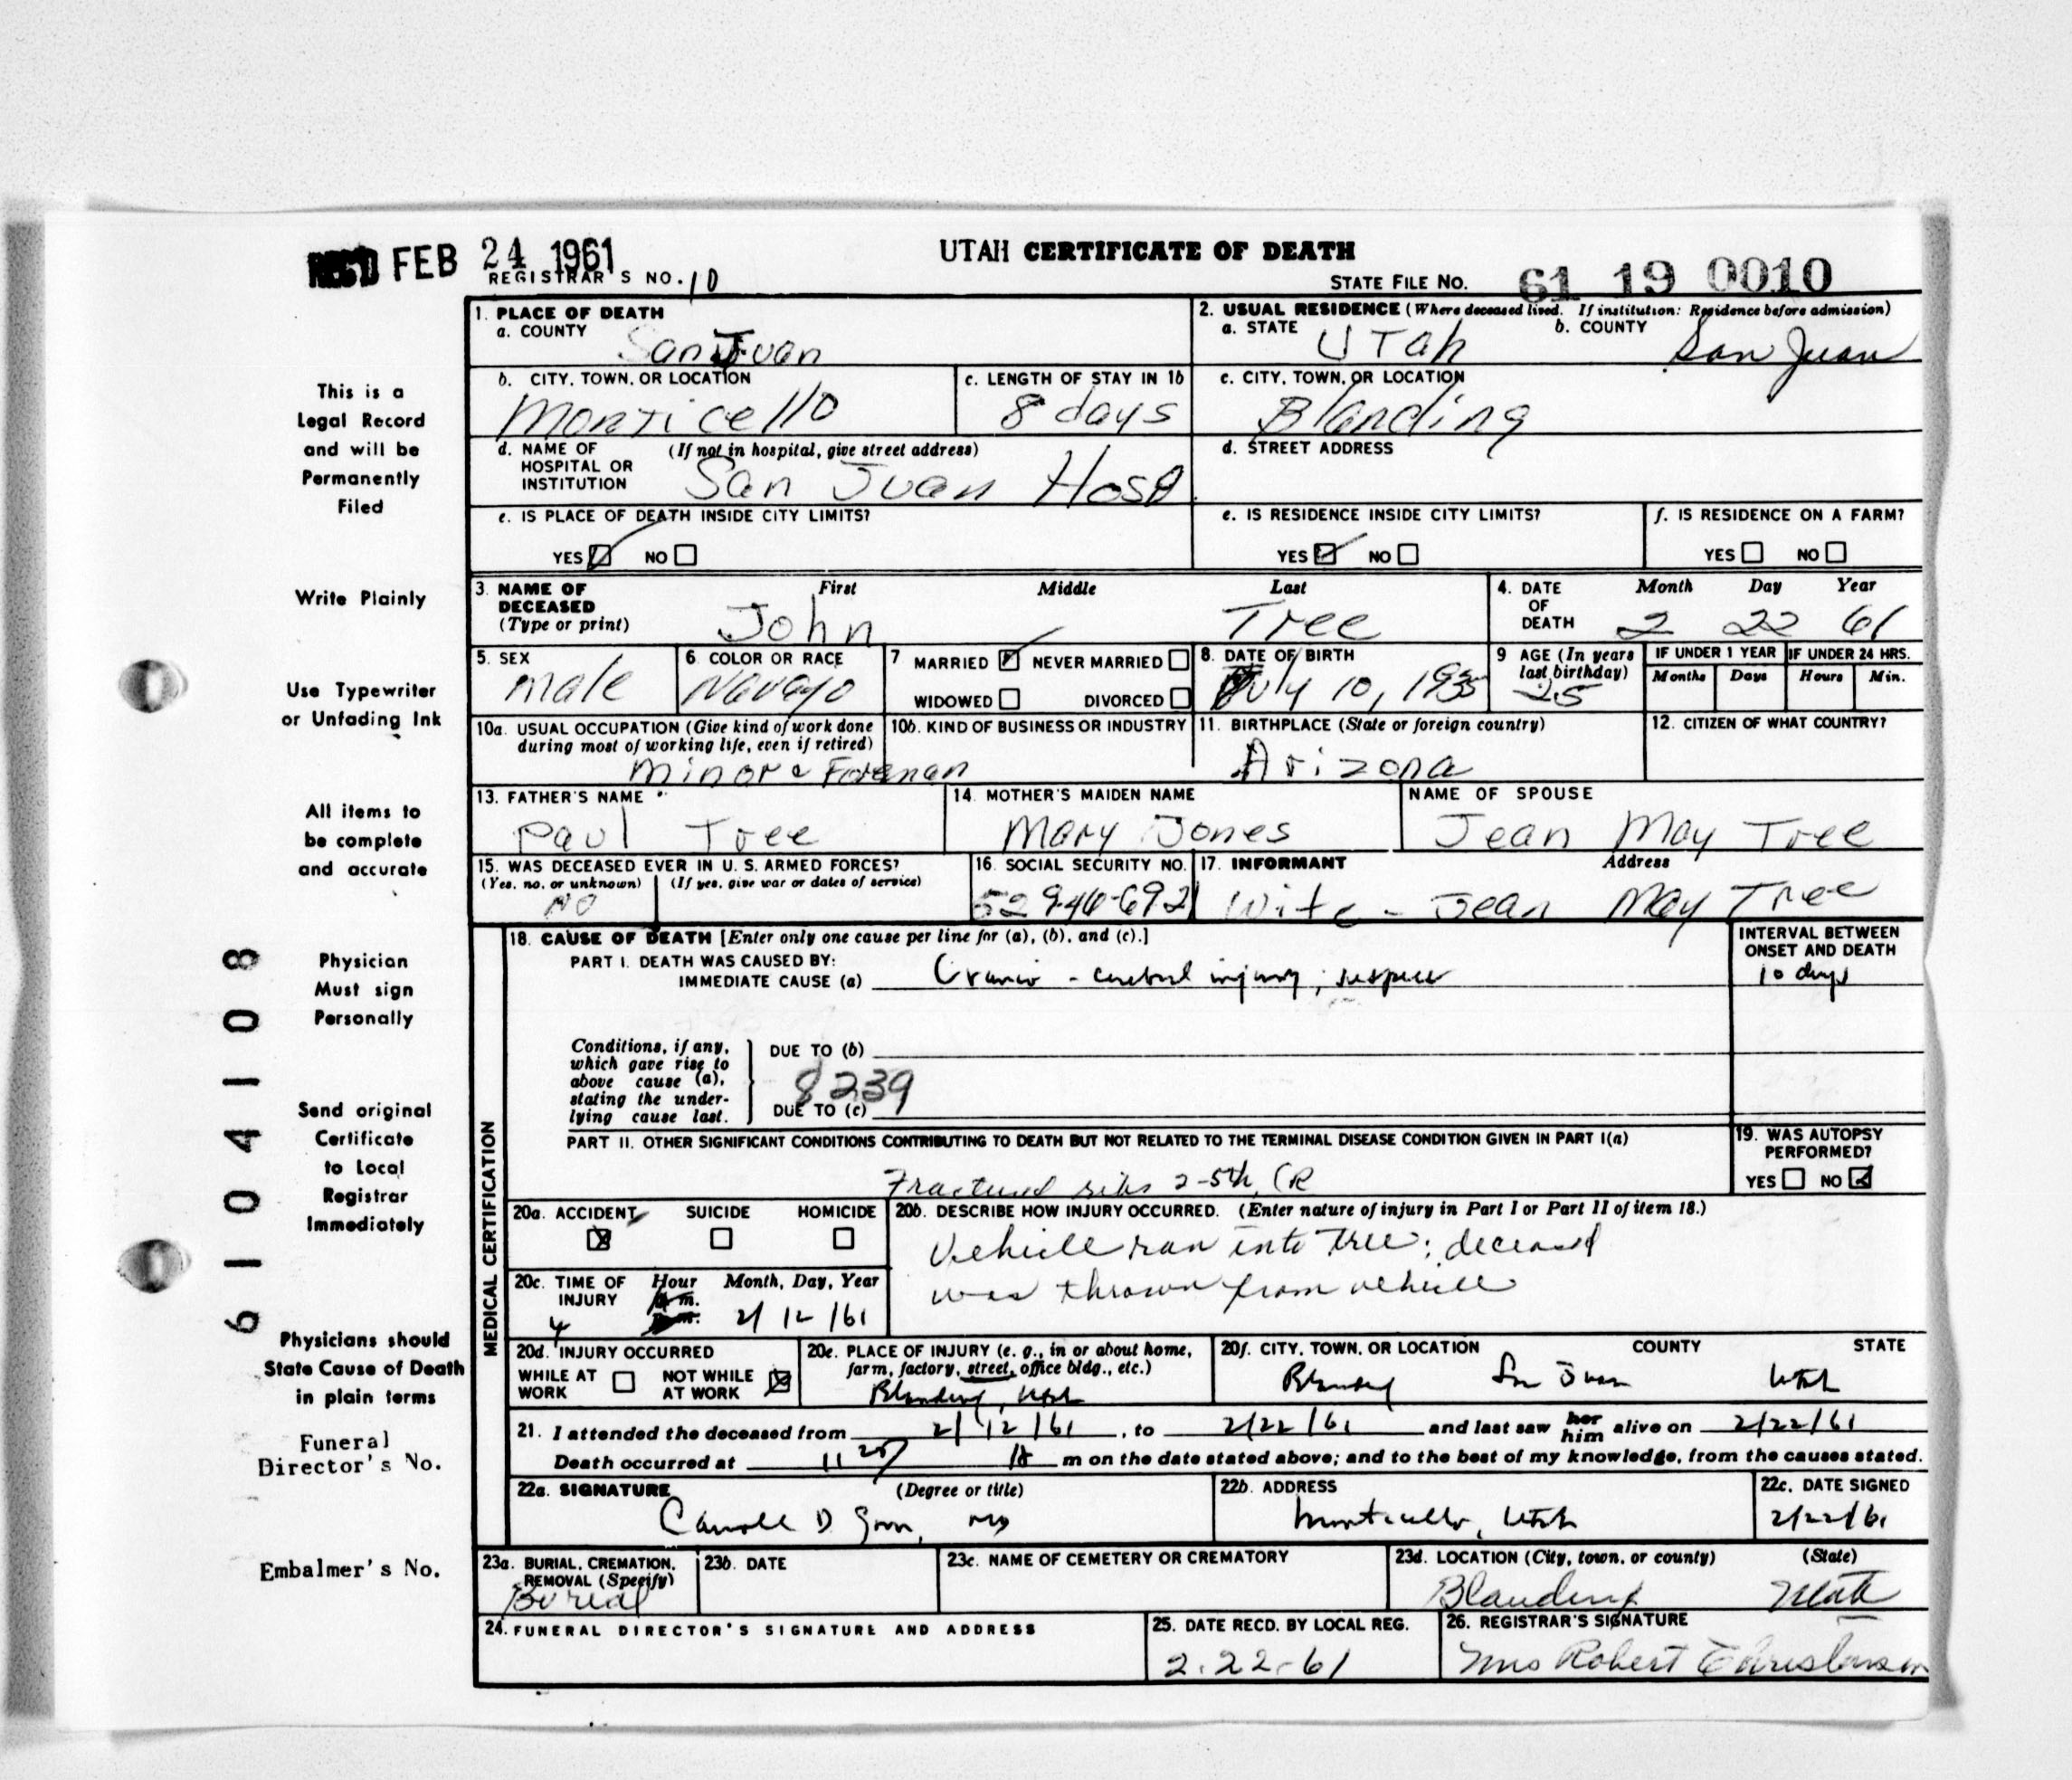 REC'D FEB 24 1961
REGISTRAR'S NO. 10
UTAH CERTIFICATE OF DEATH
STATE FILE No. 61 19 0010
1. PLACE OF DEATH
a. COUNTY San Juan
2. USUAL RESIDENCE (Where deceased lived. If institution: Residence before admission)
a. STATE Utah b. COUNTY San Juan
b. CITY, TOWN, OR LOCATION Monticello
c. LENGTH OF STAY IN 1b 8 days
c. CITY, TOWN, OR LOCATION Blanding
d. NAME OF HOSPITAL OR INSTITUTION (If not in hospital, give street address) San Juan Hosp
d. STREET ADDRESS
e. IS PLACE OF DEATH INSIDE CITY LIMITS?
YES NO
e. IS RESIDENCE INSIDE CITY LIMITS?
YES NO
f. IS RESIDENCE ON A FARM?
YES NO
3. NAME OF DECEASED (Type or print) First Middle Last
John Tree
4. DATE OF DEATH Month Day Year
2 22 61
5. SEX male
6 COLOR OR RACE Navajo
7 MARRIED NEVER MARRIED
WIDOWED DIVORCED
8. DATE OF BIRTH July 10, 1935
9 AGE (In years last birthday) 25
IF UNDER 1 YEAR Months Days
IF UNDER 24 HRS. Hours Min.
10a. USUAL OCCUPATION (Give kind of work done during most of working life, even if retired)
10b. KIND OF BUSINESS OR INDUSTRY
Minor & Foreman
11. BIRTHPLACE (State or foreign country) Arizona
12. CITIZEN OF WHAT COUNTRY?
13. FATHER'S NAME Paul Tree
14. MOTHER'S MAIDEN NAME Mary Jones
NAME OF SPOUSE Jean May Tree
15. WAS DECEASED EVER IN U. S. ARMED FORCES?
(Yes, no, or unknown) (If yes, give war or dates of service)
NO
16. SOCIAL SECURITY NO. 529-46-6921
17. INFORMANT Address
Wife - Jean May Tree
MEDICAL CERTIFICATION
18. CAUSE OF DEATH [Enter only one cause per line for (a), (b), and (c).]
PART I. DEATH WAS CAUSED BY:
IMMEDIATE CAUSE (a) Cranio - cerebral injury,
INTERVAL BETWEEN ONSET AND DEATH
10 days
Conditions, if any, which gave rise to above cause (a), stating the underlying cause last.
DUE TO (b)
8239
DUE TO (c)
PART II. OTHER SIGNIFICANT CONDITIONS CONTRIBUTING TO DEATH BUT NOT RELATED TO THE TERMINAL DISEASE CONDITION GIVEN IN PART I(a)
Fractured ribs 2-5th, (R
19. WAS AUTOPSY PERFORMED?
YES NO
20a. ACCIDENT SUICIDE HOMICIDE
20b. DESCRIBE HOW INJURY OCCURRED. (Enter nature of injury in Part I or Part II of item 18.)
Vehicle ran into Tree; deceased
was thrown from vehicle
20c. TIME OF INJURY Hour Month, Day, Year
4 a.m. p.m. 2/12/61
20d. INJURY OCCURRED
WHILE AT WORK NOT WHILE AT WORK
20e. PLACE OF INJURY (e. g., in or about home, farm, factory, street, office bldg., etc.)
Blanding, Utah
20f. CITY, TOWN, OR LOCATION COUNTY STATE
Blanding San Juan Utah
21. I attended the deceased from 2/12/61, to 2/22/61 and last saw her him alive on 2/22/61
Death occurred at 11 m on the date stated above; and to the best of my knowledge, from the causes stated.
22a. SIGNATURE (Degree or title)
Carroll D MD
22b. ADDRESS
Monticello, Utah
22c. DATE SIGNED
2/22/61
23a. BURIAL, CREMATION, REMOVAL (Specify)
Burial
23b. DATE
23c. NAME OF CEMETERY OR CREMATORY
23d. LOCATION (City, town, or county) (State)
Blanding Utah
24. FUNERAL DIRECTOR'S SIGNATURE AND ADDRESS
25. DATE RECD. BY LOCAL REG.
2.22-61
26. REGISTRAR'S SIGNATURE
Mrs Robert Christensen
This is a
Legal Record
and will be
Permanently
Filed
Write Plainly
Use Typewriter
or Unfading Ink
All items to
be complete
and accurate
Physician
Must sign
Personally
Send original
Certificate
to Local
Registrar
Immediately
Physicians should
State Cause of Death
in plain terms
Funeral
Director's No.
Embalmer's No.
6104108